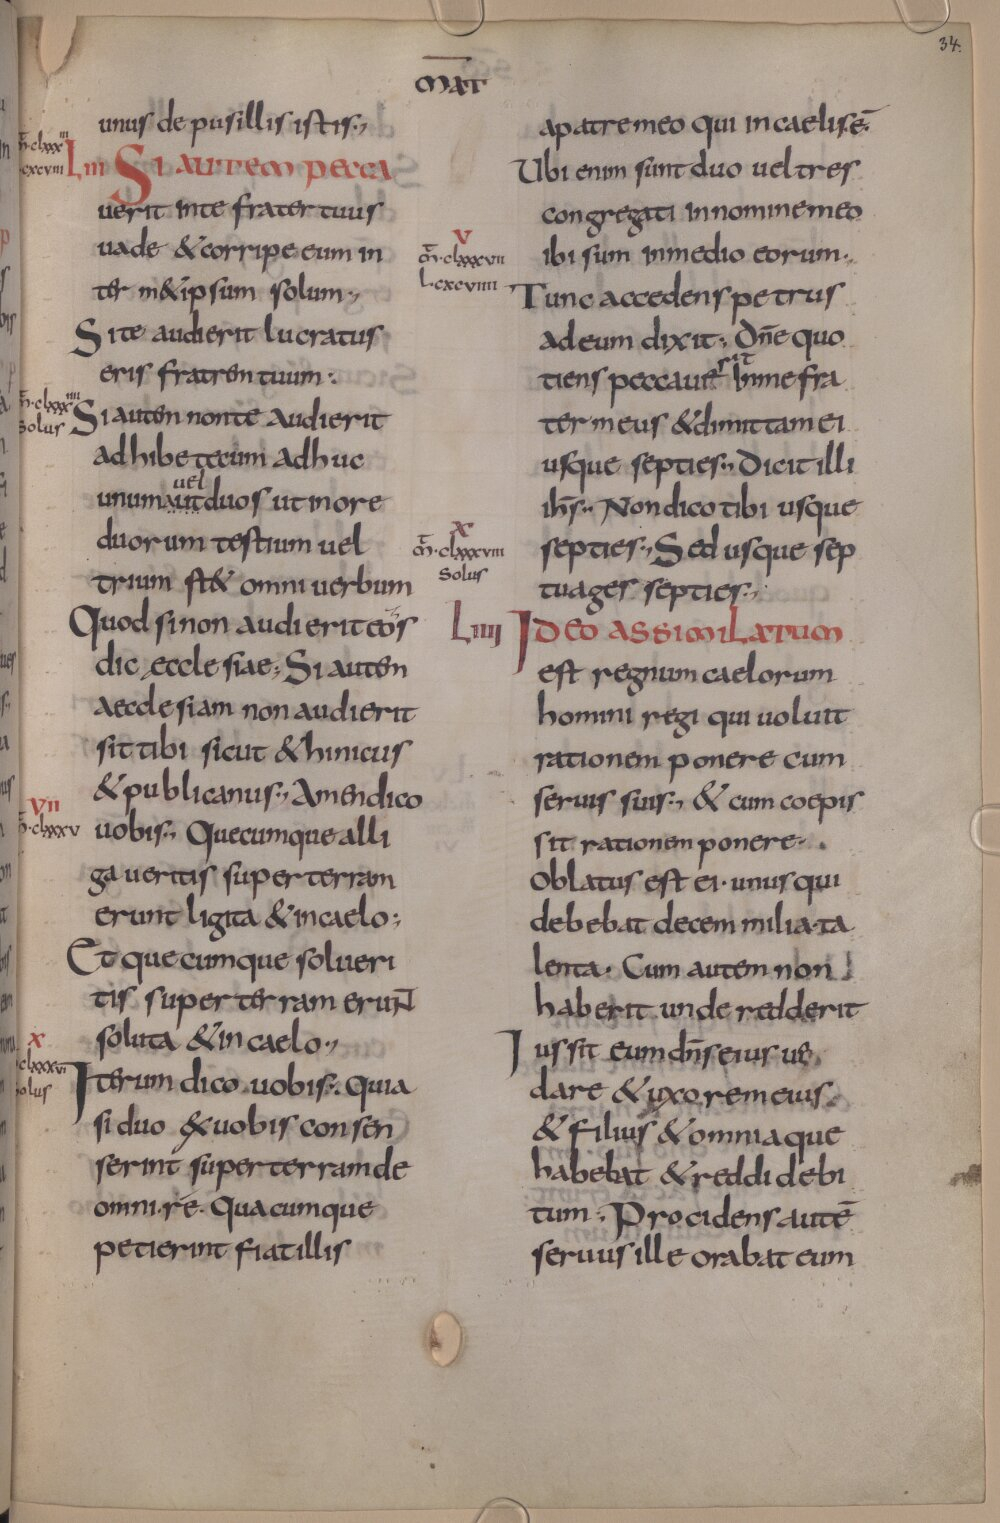 34.
MAT
unus de pusillis istis.,
m̄.clxxxiii
cxcviii
LIII SI AUTEM PECCA
uerit inte frater tuus
uade & corripe eum in
ter m& ipsum solum.,
Si te audierit lucratus
eris fratrem tuum:.
m̄.clxxxiiii
Solus
Si autem non te audierit
adhibe tecum adhuc
uel
unum aut duos ut in ore
duorum testium uel
trium st& omni uerbum
Quod si non audierit eos
dic ecclesiae; Si autem
aecclesiam non audierit
sit tibi sicut & hinicus
& publicanus., Amen dico
VII
m̄.clxxxv
uobis., Quecumque alli
gaueritis super terram
erunt ligita & in caelo;
Et quecumque solueri
tis super terram erunt
soluta & in caelo.,
X
clxxxvi
solus
Iterum dico uobis:. Quia
si duo ex uobis consen
serint super terram de
omni.re. Quacumque
petierint fiat illis
apatre meo qui in caelis.ē.
Ubi enim sunt duo uel tres
congregati in nomine meo
ibi sum in medio eorum.,
V
m̄.clxxxvii
L.cxcviiii
Tunc accedens petrus
ad eum dixit; Dn̄e quo
tiens peccauerit in me fra
ter meus & dimittam ei
usque septies., Dicit illi
ih̄s., Non dico tibi usque
X
m̄.clxxxviii
Solus
septies., Sed usque sep
tuages septies.,
LIIII IDEO ASSIMILATUM
est regnum caelorum
homini regi qui uoluit
rationem ponere cum
seruis suis., & cum coepis
sit rationem ponere.
Oblatus est ei.unus qui
debebat decem milia.ta
lenta. Cum autem non
haberit unde redderit
Iussit eum dn̄s eius ue
dare & uxorem eius.
& filius & omnia que
habebat & reddi debi
tum; Procidens autē
seruus ille orabat eum